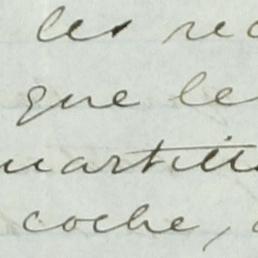 les rec
que le
uartill
coche,